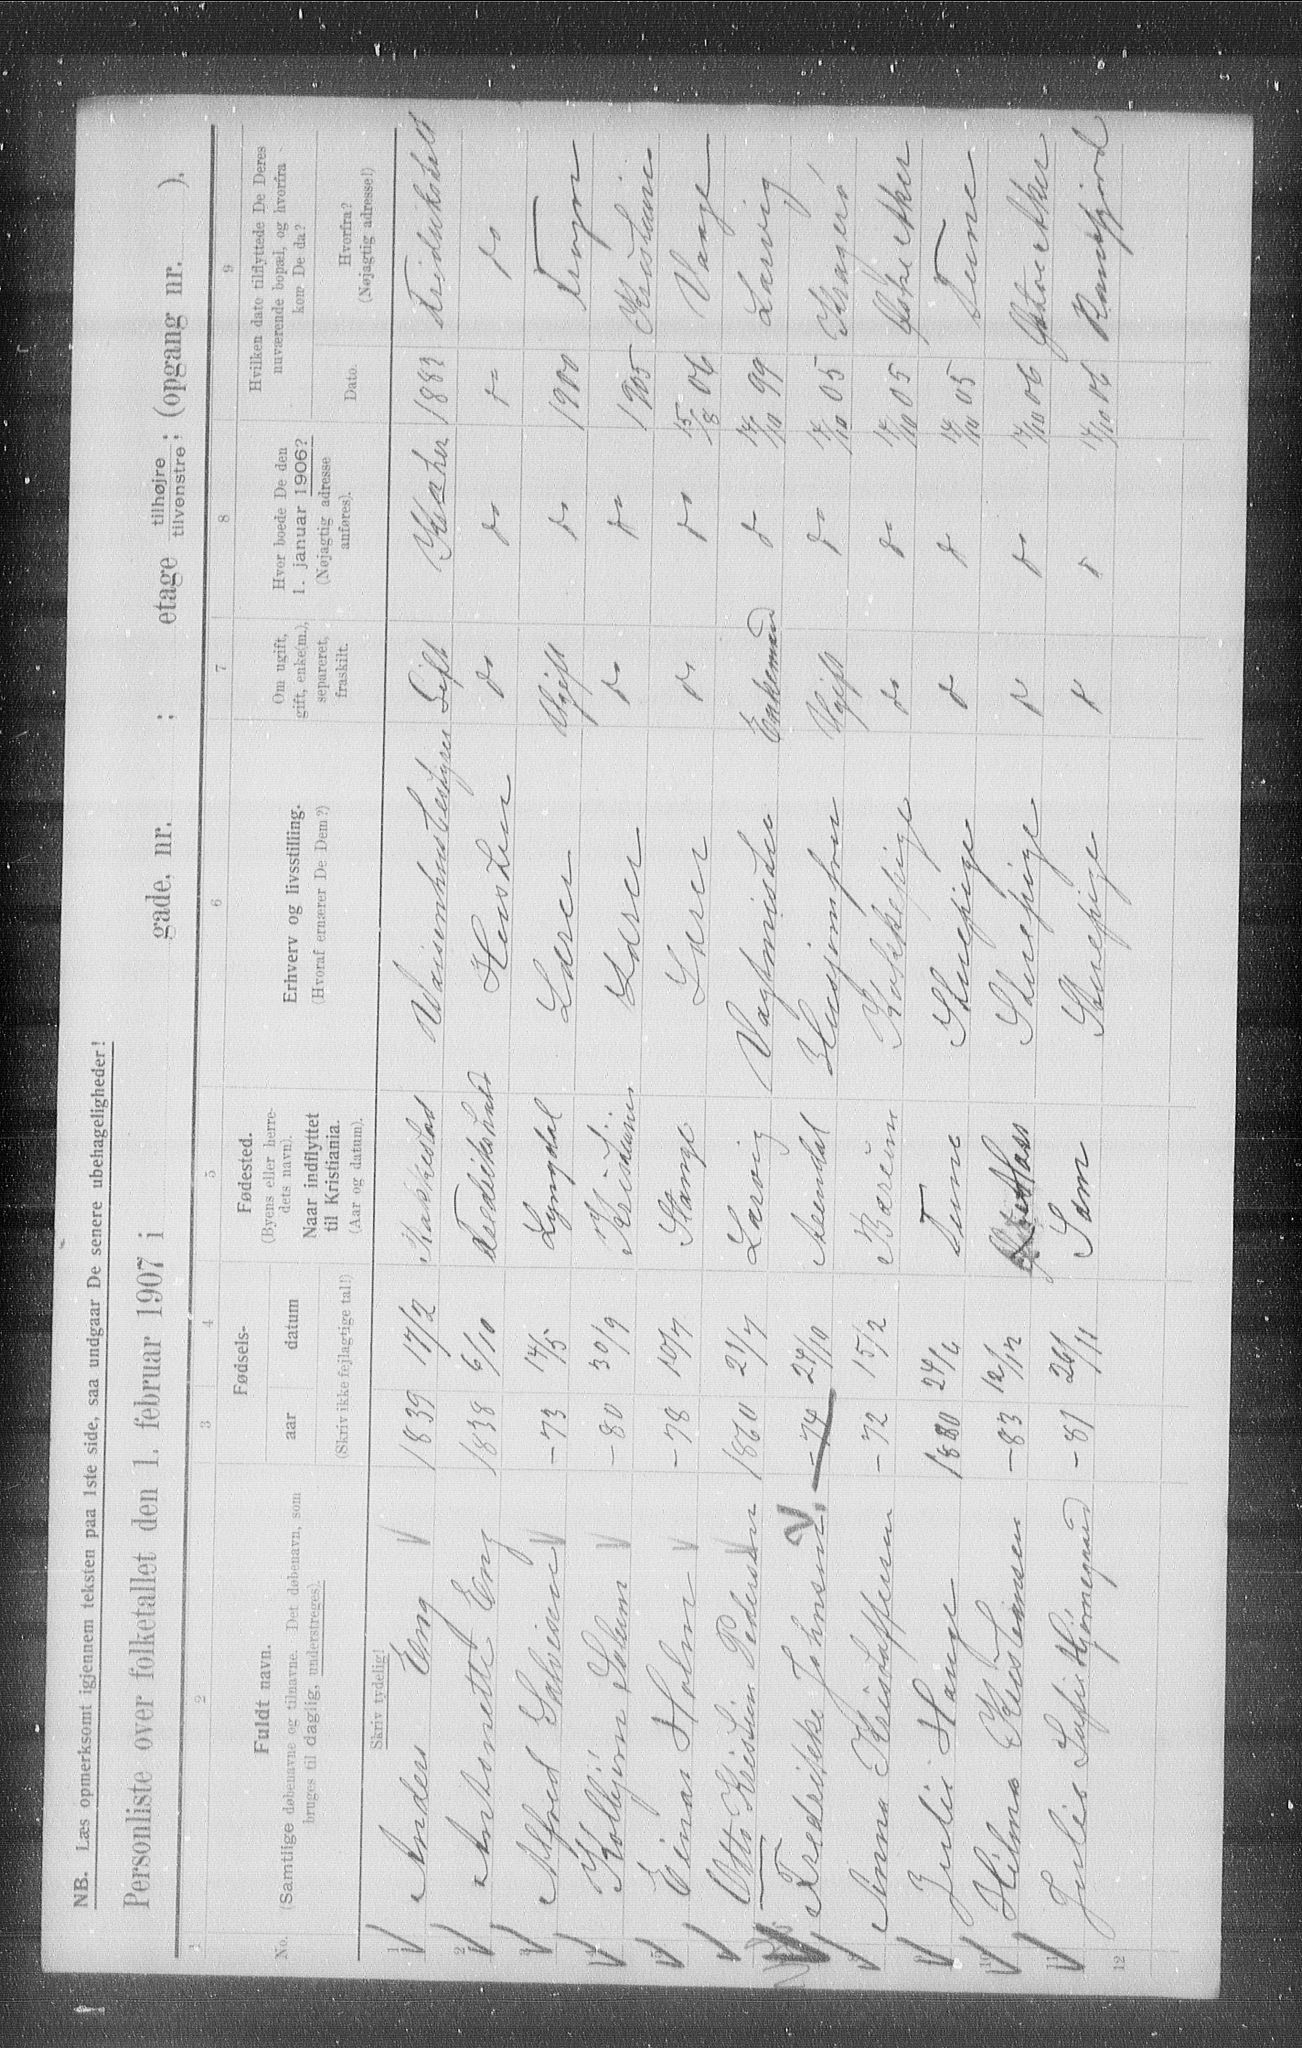 NB. Læs opmerksomt igjennem teksten paa 1ste side, saa undgaar De senere ubehageligheder!
Personliste over folketallet den 1. februar 1907 i gade, nr. ; etage tilhøjre tilvenstre; (opgang nr. ).
1 2 3 4 5 6 7 8 9
No. Fuldt navn. (Samtlige døbenavne og tilnavne. Det døbenavn, som bruges til daglig, understreges). Fødsels- aar datum Fødested. (Byens eller herredets navn). Naar indflyttet til Kristiania. (Aar og datum). Erhverv og livsstilling. (Hvoraf ernærer De Dem?) Om ugift, gift, enke(m.), separeret, fraskilt. Hvor boede De den 1. januar 1906? (Nøjagtig adresse anføres). Hvilken dato tilflyttede De Deres nuværende bopæl, og hvorfra kom De da? Dato. Hvorfra? (Nøjagtig adresse!)
Skriv tydelig! (Skriv ikke fejlagtige tal!)
1 Anders Eng 1839 17/2 Rakkestad Waisenhusbestyrer Gift 1883 Fredrikshald
2 Antonette Eng 1838 6/10 Fredrikshald Husstru do do do do
3 Alfred Salvesen -73 14/5 Lyngdal Lærer Ugift do 1900
4 Kolbjørn Solem -80 30/9 Kristiania Lærer do do 1905 Kristiania
5 Einar Holm -78 Stange Lærer do do 15/8 06 Vaage
6 Otto Kristian Pedersen 1860 21/7 Larvig Vagtmester Enkemand do 14/10 99 Larvig
7 Fredrikke Johnsen -74 24/10 Arendal Husjomfru Ugift do 14/10 05 Kragerø
8 Anna Kristoffersen -72 15/2 Bærum Kokkepige do do 14/10 05 Østre Aker
9 Julie Hauge 1880 24/6 Tune Stuepige do do 14/10 05 Tune
10 Hilma Kristiansen -83 12/12 Stuepige do do 17/10 06 Østre Aker
11 Julie Sofie Hjørnegaard -81 26/11 Sem Stuepige do do 17/10 06 Ramfjord
12